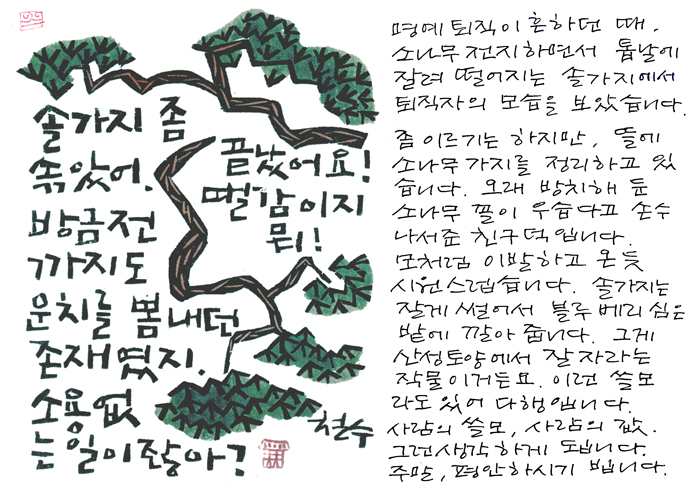 솔가지 좀
솎았어.
방금전
까지도
운치를 뽐내던
존재였지.
소용없
는일이잖아?
끝났어요!
땔감이지
뭐!
철수
명예퇴직이 흔하던 때,
소나무 전지하면서 톱날에
잘려 떨어지는 솔가지에서
퇴직자의 모습을 보았습니다.
좀 이르기는 하지만, 뜰에
소나무가지를 정리하고 있
습니다. 오래 방치해 둔
소나무 꼴이 우습다고 손수
나서준 친구덕입니다.
모처럼 이발하고 온듯
시원스럽습니다. 솔가지는
잘게 썰어서 블루베리심은
밭에 깔아 줍니다. 그게
산성토양에서 잘 자라는
작물이거든요. 이런 쓸모
라도 있어 다행입니다.
사람의 쓸모, 사람의 값.
그런생각 하게 됩니다.
주말, 평안하시기 빕니다.